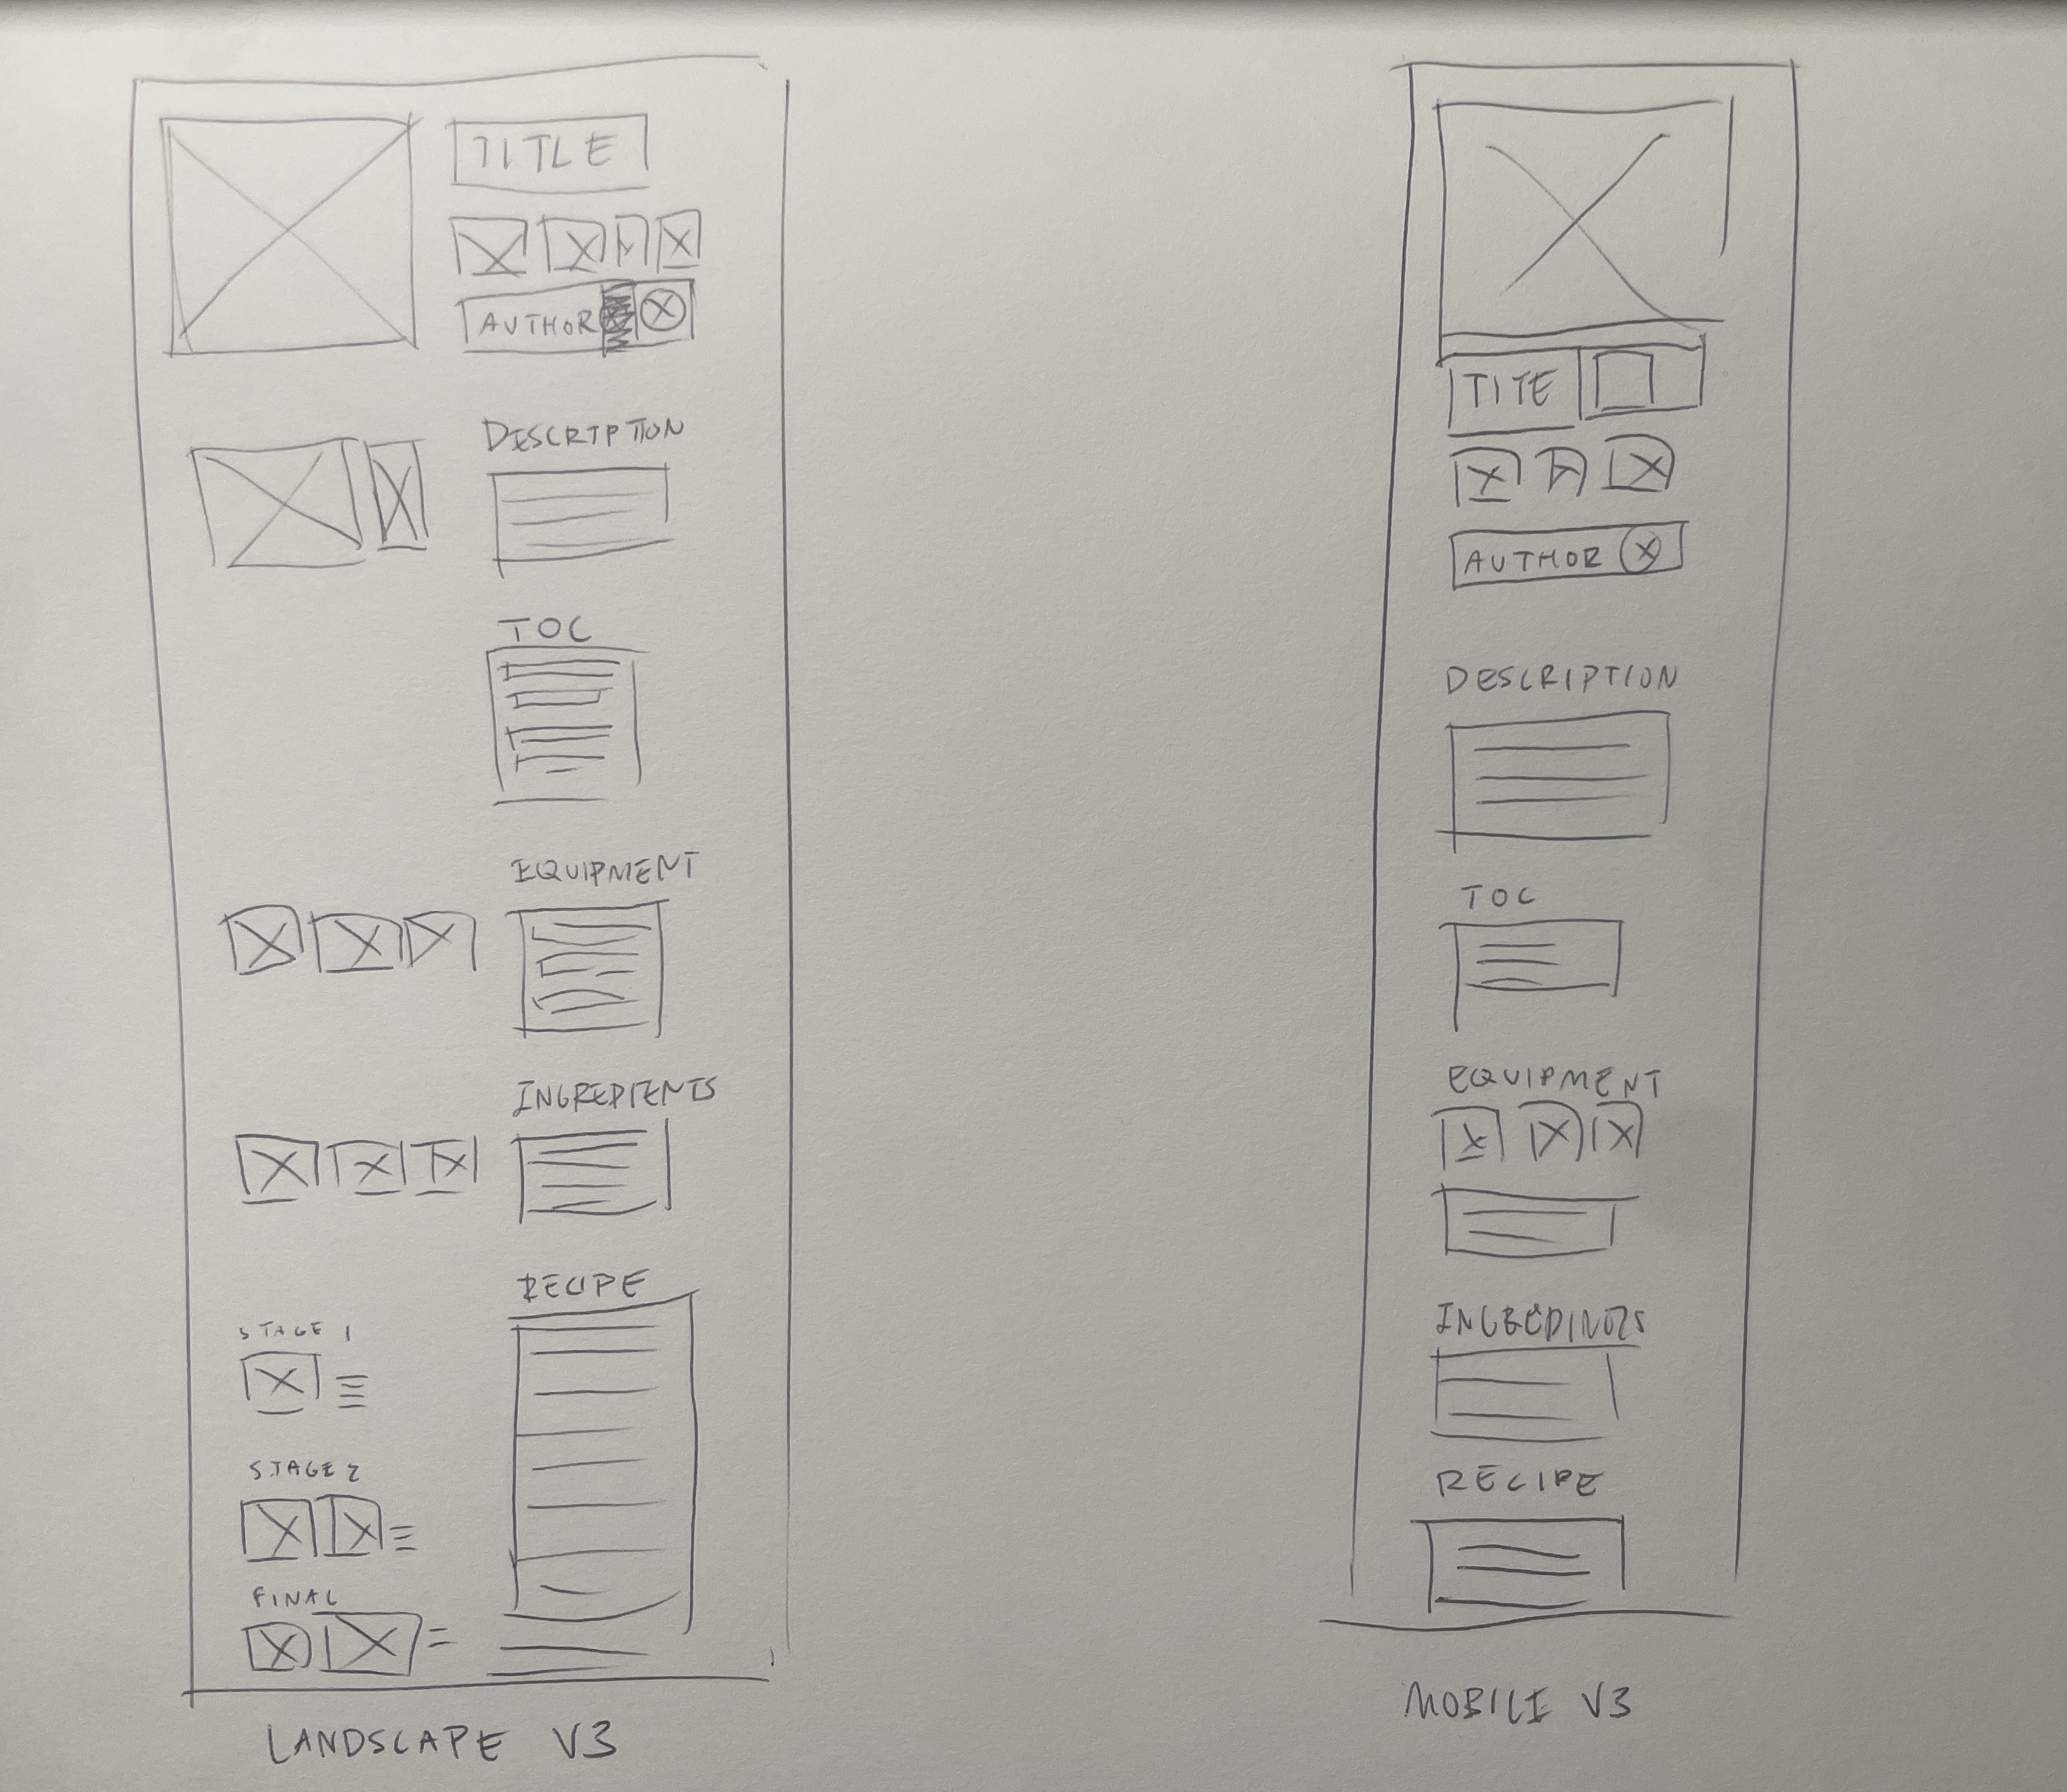 TITLE
AUTHOR
DESCRIPTION
TOC
EQUIPMENT
INGREDIENTS
RECIPE
STAGE 1
STAGE 2
FINAL
LANDSCAPE V3
TITE
AUTHOR
DESCRIPTION
TOC
EQUIPMENT
INGREDINTS
RECIPE
MOBILE V3